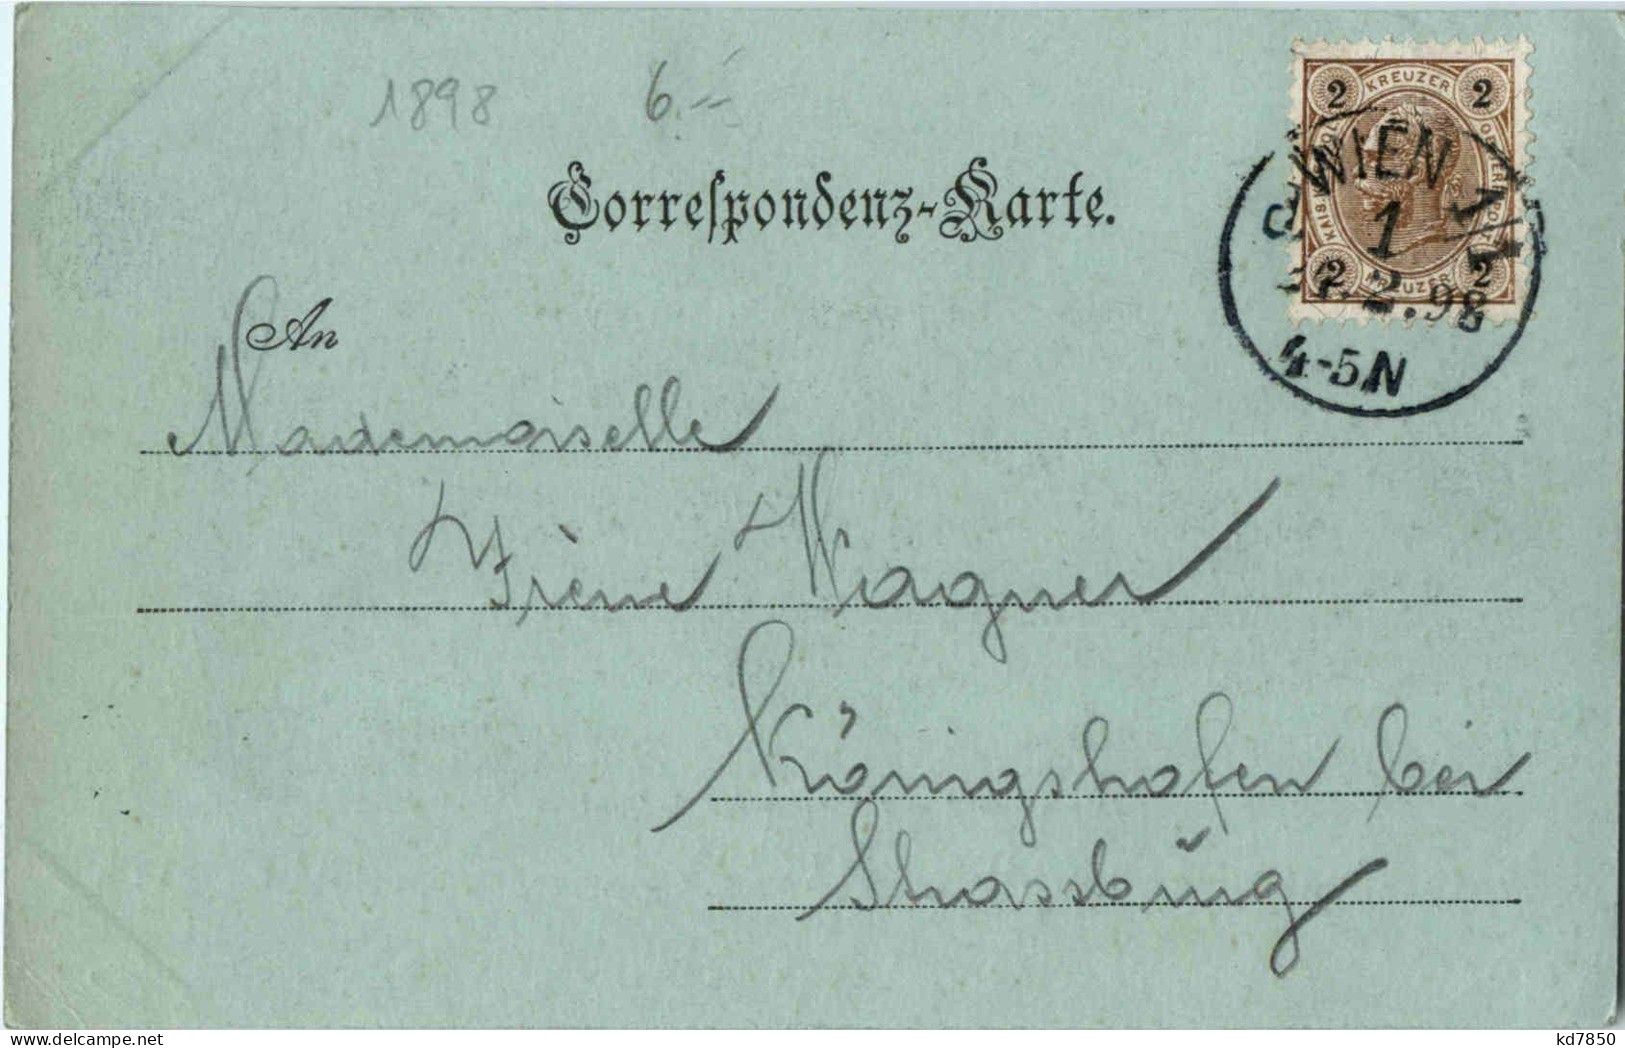 1898
6.–
Correspondenz-Karte.
2 KREUZER 2
2 KREUZER 2
WIEN 1/1
1
2.98
4-5N
An
Mademoiselle
Irène Wagner
Königshofen bei
Strassbŭrg
delcampe.net
kd7850